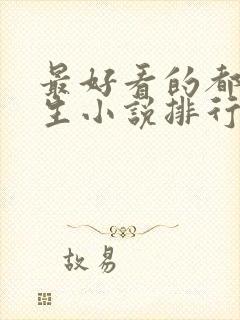 最好看的都
生小说排行
故易